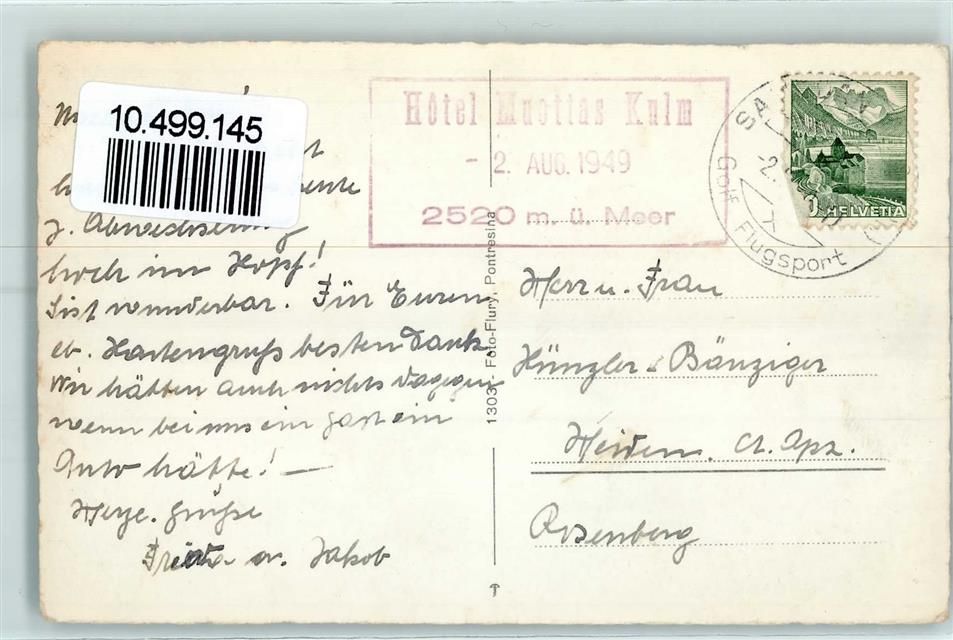 10.499.145
z. Abwechslung
hoch im Kopf!
S'ist wunderbar. Für Euren
eb. Kartengruß besten Dank.
Wir hätten auch nichts dagegen
wenn bei uns ein Gast ein
Auto hätte! —
Herze. Grüße
Frieda u. Jakob
13031 - Foto-Flury, Pontresina
Hôtel Muottas Kulm
- 2. AUG. 1949
2520 m. ü. Meer
Golf Flugsport
HELVETIA
Herr u. Frau
Künzler-Bänziger
Heiden. Ct. Apz.
Rosenberg